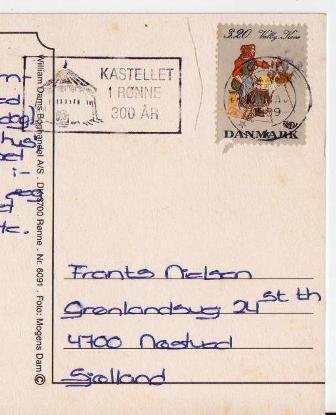 KASTELLET
I RØNNE
300 ÅR
3.20 Valby-Kone
DANMARK
William Dams Boghandel A/S . DK-3700 Rønne . Nr. 6091 . Foto: Mogens Dam ©
Frants Nielsen
Grønlandsvg 24 st th
4700 Næstved
Sjælland